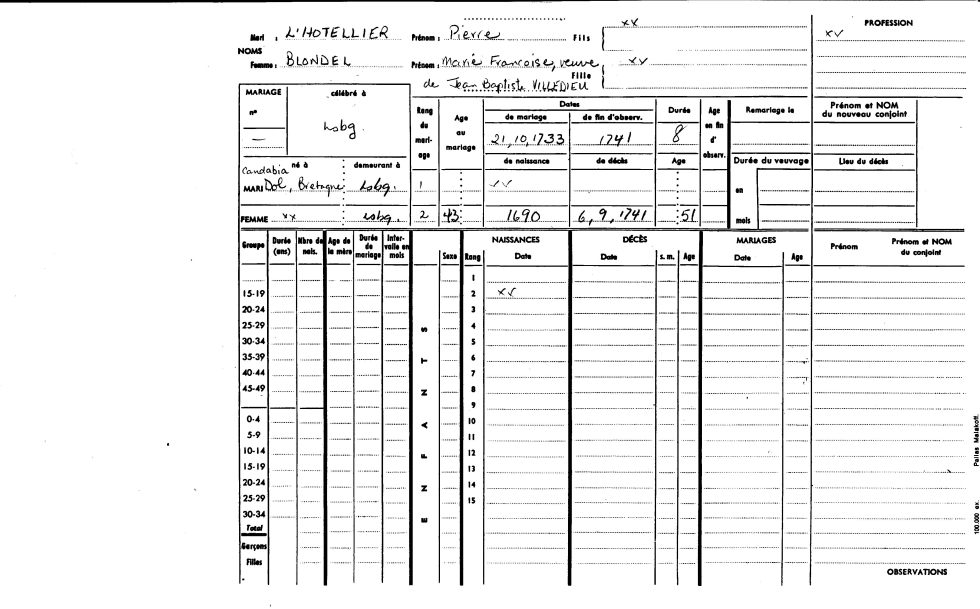 xx PROFESSION
Mari : L'HOTELLIER Prénom : Pierre Fils xx
NOMS
Femme : BLONDEL Prénom : Marie Francoise, veuve Fille xx
de Jean Baptiste VILLEDIEU
MARIAGE célébré à Rang du mari-age Age au mariage Dates Durée Age en fin d'observ. Remariage le Prénom et NOM du nouveau conjoint
n° — Lsbg. de mariage de fin d'observ.
21,10,1733 1741 8
de naissance de décès Age Durée du veuvage Lieu du décès
né à demeurant à
Candabia
MARI Dol, Bretagne Lsbg. 1 xx en
FEMME xx Lsbg. 2 43 1690 6,9,1741 51 mois
Groupe Durée (ans) Nbre de nais. Age de la mère Durée de mariage Inter-valle en mois ENFANTS Sexe Rang NAISSANCES Date DÉCÈS Date s. m. Age MARIAGES Date Age Prénom Prénom et NOM du conjoint
1
15-19 2 xx
20-24 3
25-29 4
30-34 5
35-39 6
40-44 7
45-49 8
9
0-4 10
5-9 11
10-14 12
15-19 13
20-24 14
25-29 15
30-34
Total
Garçons
Filles
OBSERVATIONS
100,000 ex. Palles Malakoff.